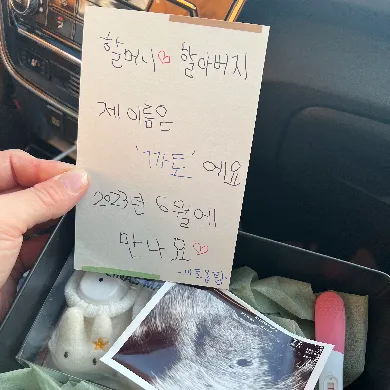 할머니♡ 할아버지
제 이름은
'까토' 에요
2023년 6월에
만나요♡